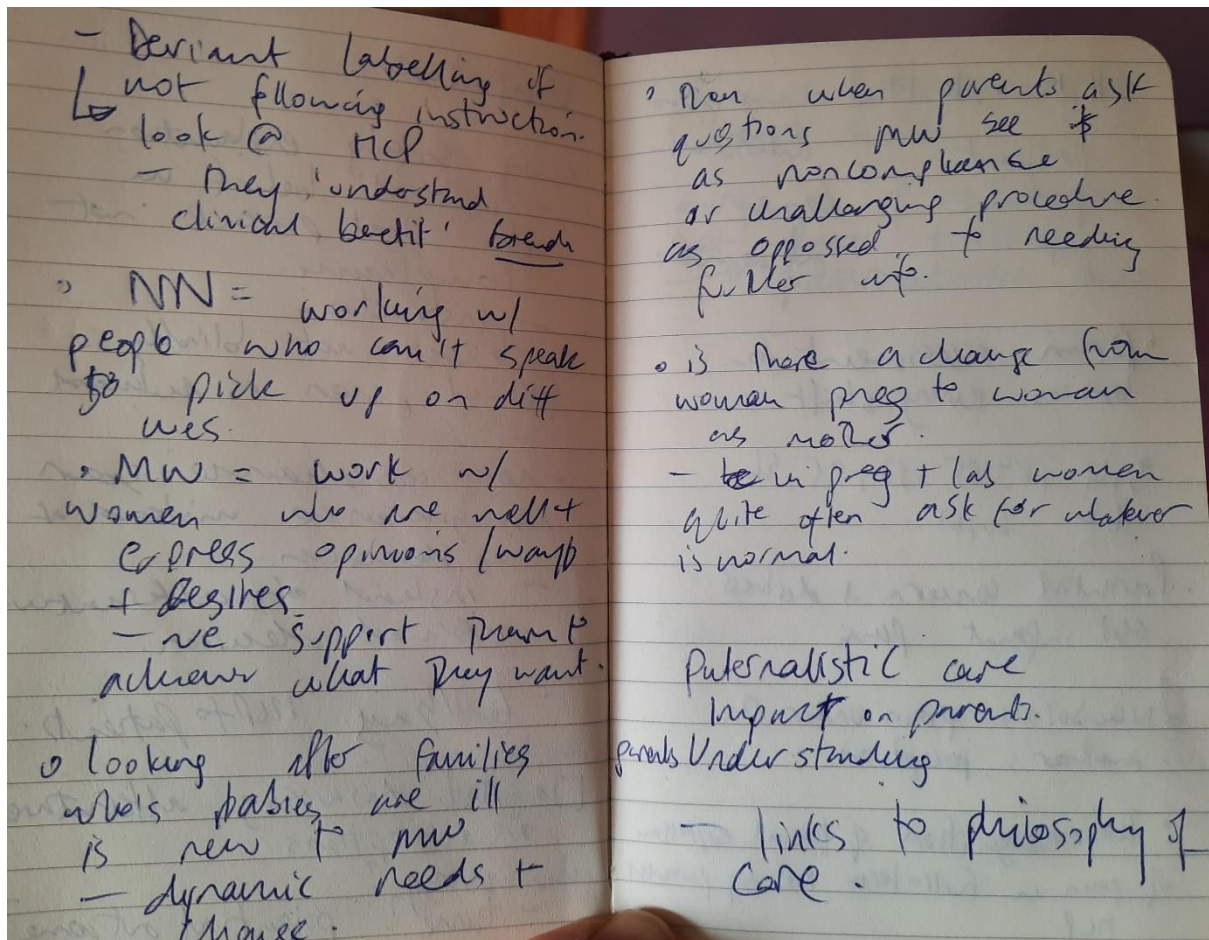 - Deviant labelling if
not following instruction.
look @ HCP
- They 'understand
clinical benefit'
• NN = working w/
people who can't speak
so pick up on diff
ues.
• MW = work w/
women who are well +
express opinions / ways
+ desires
- we support them to
achieve what they want.
o looking after families
who's babies are ill
is new to MW
- dynamic needs +
• Then when parents ask
questions MW see it
as noncompliance
or challenging procedure.
as oppossed to needing
further info.
• is there a change from
woman preg to woman
as mother.
- in preg + lab women
quite often ask for whatever
is normal.
Paternalistic care
Impact on parents.
parents Understanding
- links to philosophy of
care.